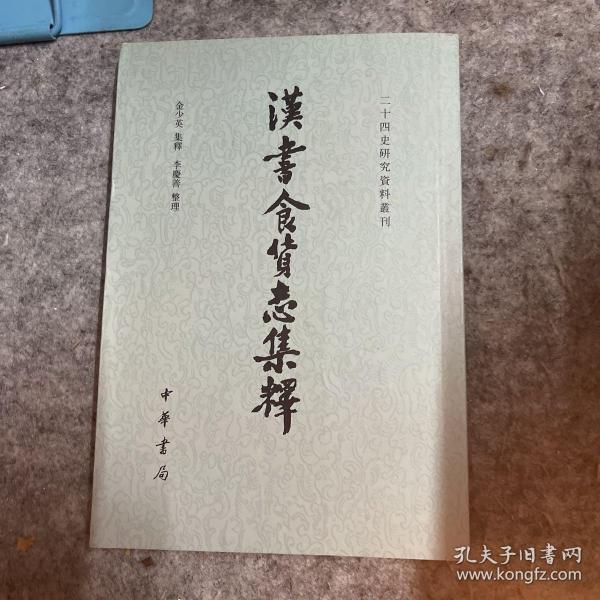 二十四史研究資料叢刊
漢書食貨志集釋
金少英 集釋 李慶善 整理
中華書局
孔夫子旧书网
www.kongfz.com